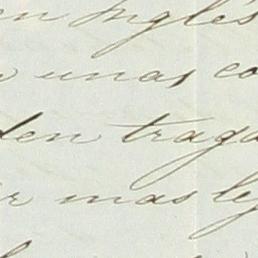 en Inglés
unas co
den traga
mas le